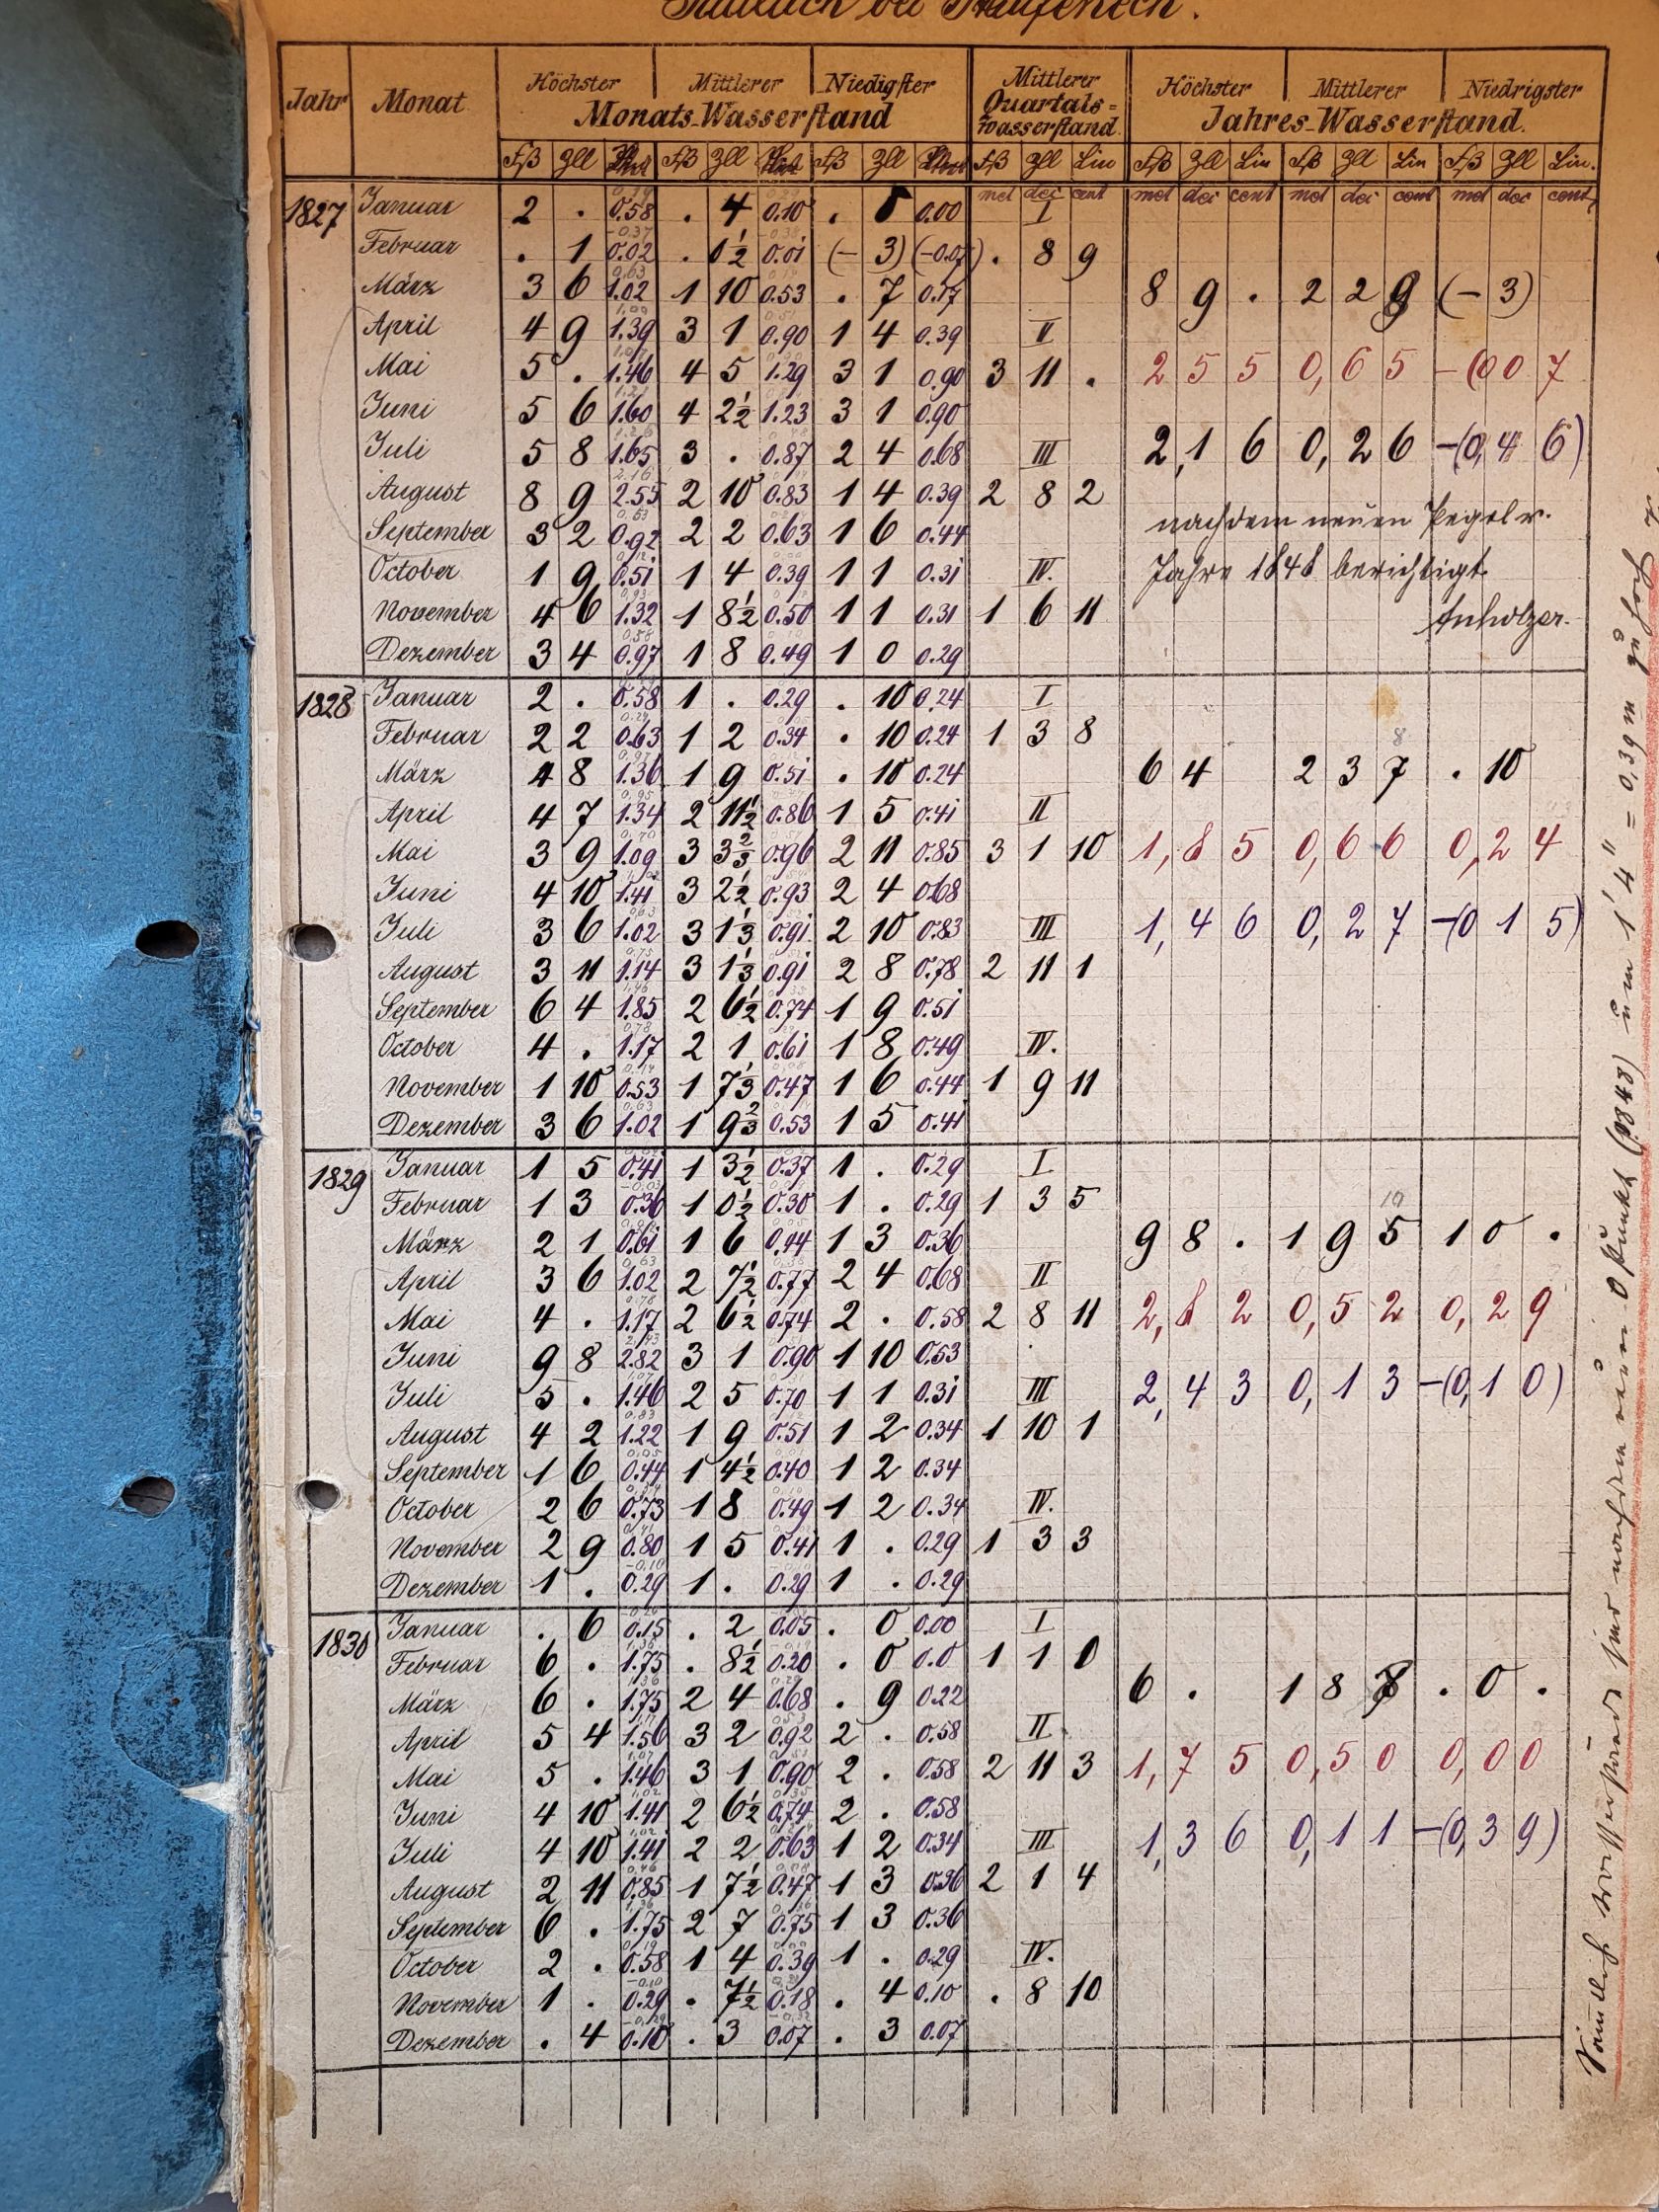 bei Staufeneck.
Jahr Monat Höchster Mittlerer Niedigster Mittlerer Höchster Mittlerer Niedrigster
Monats-Wasserstand Quartals= wasserstand. Jahres-Wasserstand.
Fß Zll Fß Zll Fß Zll Fß Zll Lin Fß Zll Lin Fß Zll Lin Fß Zll Lin.
met dec cent met dec cent met dec cent met dec cent
1827 Januar 2 . 0.58 . 4 0.10 . 0 0.00 I
Februar . 1 0.02 . 0½ 0.01 (- 3) (-0.07) . 8 9
März 3 6 1.02 1 10 0.53 . 7 0.17 8 9 . 2 2 9 (- 3)
April 4 9 1.39 3 1 0.90 1 4 0.39 II
Mai 5 . 1.46 4 5 1.29 3 1 0.90 3 11 . 2 5 5 0,6 5 -(0 0 7
Juni 5 6 1.60 4 2½ 1.23 3 1 0.90
Juli 5 8 1.65 3 . 0.87 2 4 0.68 III 2,1 6 0,2 6 -(0,4 6)
August 8 9 2.55 2 10 0.83 1 4 0.39 2 8 2
September 3 2 0.92 2 2 0.63 1 6 0.44 nach dem neuen Pegel v.
October 1 9 0.51 1 4 0.39 1 1 0.31 IV. Jahre 1848 berichtigt
November 4 6 1.32 1 8½ 0.50 1 1 0.31 1 6 11
Dezember 3 4 0.97 1 8 0.49 1 0 0.29
1828 Januar 2 . 0.58 1 . 0.29 . 10 0.24 I
Februar 2 2 0.63 1 2 0.34 . 10 0.24 1 3 8
März 4 8 1.36 1 9 0.51 . 10 0.24 6 4 2 3 7 . 10
April 4 7 1.34 2 11½ 0.86 1 5 0.41 II
Mai 3 9 1.09 3 3⅔ 0.96 2 11 0.85 3 1 10 1,8 5 0,6 6 0,2 4
Juni 4 10 1.41 3 2½ 0.93 2 4 0.68
Juli 3 6 1.02 3 1⅓ 0.91 2 10 0.83 III 1,4 6 0,2 7 -(0 1 5)
August 3 11 1.14 3 1⅓ 0.91 2 8 0.78 2 11 1
September 6 4 1.85 2 6½ 0.74 1 9 0.51
October 4 . 1.17 2 1 0.61 1 8 0.49 IV.
November 1 10 0.53 1 7⅓ 0.47 1 6 0.44 1 9 11
Dezember 3 6 1.02 1 9⅔ 0.53 1 5 0.41
1829 Januar 1 5 0.41 1 3½ 0.37 1 . 0.29 I
Februar 1 3 0.36 1 0½ 0.30 1 . 0.29 1 3 5
März 2 1 0.61 1 6 0.44 1 3 0.36 9 8 . 1 9 5 1 0 .
April 3 6 1.02 2 7½ 0.77 2 4 0.68 II
Mai 4 . 1.17 2 6½ 0.74 2 . 0.58 2 8 11 2,8 2 0,5 2 0,2 9
Juni 9 8 2.82 3 1 0.90 1 10 0.53
Juli 5 . 1.46 2 5 0.70 1 1 0.31 III 2,4 3 0,1 3 -(0,1 0)
August 4 2 1.22 1 9 0.51 1 2 0.34 1 10 1
September 1 6 0.44 1 4½ 0.40 1 2 0.34
October 2 6 0.73 1 8 0.49 1 2 0.34 IV.
November 2 9 0.80 1 5 0.41 1 . 0.29 1 3 3
Dezember 1 . 0.29 1 . 0.29 1 . 0.29
1830 Januar . 6 0.15 . 2 0.05 . 0 0.00 I
Februar 6 . 1.75 . 8½ 0.20 . 0 0.0 1 1 0
März 6 . 1.75 2 4 0.68 . 9 0.22 6 . 1 8 . 0 .
April 5 4 1.56 3 2 0.92 2 . 0.58 II
Mai 5 . 1.46 3 1 0.90 2 . 0.58 2 11 3 1,7 5 0,5 0 0,0 0
Juni 4 10 1.41 2 6½ 0.74 2 . 0.58
Juli 4 10 1.41 2 2 0.63 1 2 0.34 III 1,3 6 0,1 1 -(0,3 9)
August 2 11 0.85 1 7½ 0.47 1 3 0.36 2 1 4
September 6 . 1.75 2 7 0.75 1 3 0.36
October 2 . 0.58 1 4 0.39 1 . 0.29 IV.
November 1 . 0.29 . 7½ 0.18 . 4 0.10 . 8 10
Dezember . 4 0.10 . 3 0.07 . 3 0.07
Sämtlich Wasserstände sind nach dem neuen 0 Punkt (1848) um 1' 4" = 0,39 m zu hoch